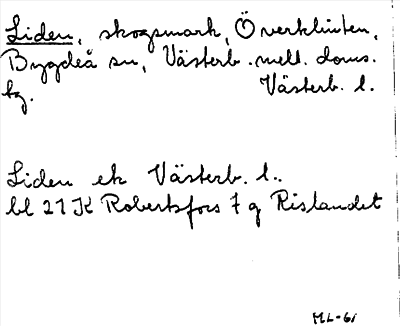 Liden, skogsmark, Överklinten,
Bygdeå sn, Västerb. mell. doms.
tg. Västerb. l.
Liden ek Västerb. l..
bl 21 K Robertsfors 7 g Rislandet
ML-61